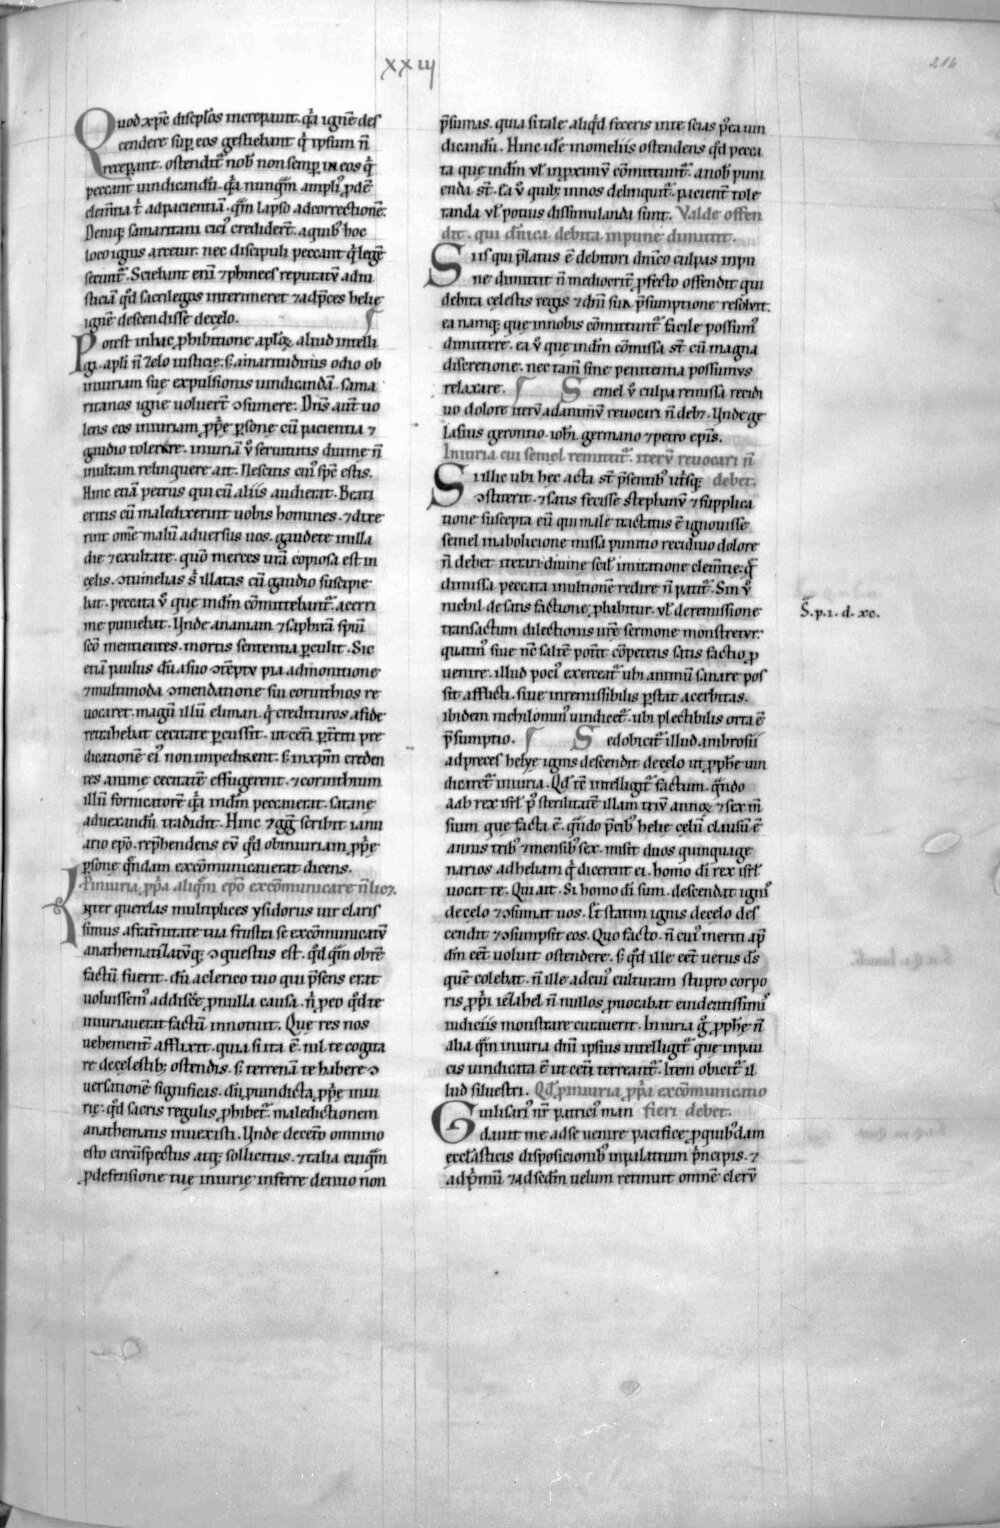 xxiij
216
Quod xp̄c discipłos increpauit. qͥa igne᷒ des
cendere sup̱ eos gestiebant qͥ ipsum n̄
receperant. ostendit᷑ nob᷒ non semp̱ in eos qͥ
peccant uindicandū. qͥa nunqͣm ampliꝰ ꝓdē
clem̄tia t᷑ ad pacientiā. qͣm lapso ad correctionē:
Deniqꝫ samaritani ciciꝰ credidert̄. a quibꝰ hoc
loco ignis arcetur. nec discipuli peccant qͥ legē
secunt᷑. Sciebant enī ⁊ phinees reputatū ad iu
sticiā qͦd sacrilegos interimeret ⁊ ad p̄ces helie
ignē descendisse de celo.
Potest in hac ꝓhibitione aplōꝝ aliud intelli
gi. apłi n̄ zelo iusticię. s᷒ amaritudinis odio ob
iniuriam suę expulsionis uindicandā. sama
ritanos igne uoluert̄ ꝯsumere. Dn̄s aut̄ uo
lens eos iniuriam ꝓp̄e ꝑsone cū pacientia ⁊
gaudio tolerare. iniuriā v̊ seruitutis diuine n̄
inultam relinquere ait. Nescitis cuiꝰ sp̄c estis.
Hinc etiā petrus qui cū aliis audierat. Beati
eritis cū maledixerint uobis homines. ⁊ dixe
rint om̄e malū aduersus uos. gaudete in illa
die ⁊ exultate. quō merces ur̄a copiosa est in
celis. ꝯtumelias sͥ illatas cū gaudio suscipie
bat. peccata v̊ que in dm̄ cōmittebant᷑. acerri
me puniebat. Vnde ananiam ⁊ saphirā spūi
scō mentientes. mortis sententia ꝑculit. Sic
etiā paulus dū a suo ꝯtēptu pia admonitione
⁊ multimoda ꝯmendatione sui corinthios re
uocaret. magū illū eliman. qͥ credituros a fide
retrahebat cecitate ꝑcussit. ut cet̄i ꝑt̄riti pre
dicationē eiꝰ non impedirent. s᷒ in xp̄m creden
tes anime cecitatē effugerent. ⁊ corinthium
illū fornicatorē qͥa in dm̄ peccauerat. satane
ad uexandū tradidit. Hinc ⁊ gg̅ scribit ianu
ario ep̄o. rep̄hendens eū qͦd ob iniuriam ꝓp̄e
ꝑsone qͣndam excōmunicauerat dicens.
P iniuria ꝓp̄a aliqͣm ep̄o excōmunicare n̄ licꝫ.
Inter querelas multiplices ysidorus uir claris
simus a frat̄nitate tua frustra se excōmunicatū
anathematizatūqꝫ ꝯquestus est. qͦd qͣm ob rē
factū fuerit. dū a clerico tuo qui p̄sens erat
uoluissemꝰ addiscē. ꝓ nulla causa. n̄ ꝓ eo qͦd te
iniuriauerat factū innotuit. Que res nos
uehement̄ afflixit. quia si ita ē. nil te cogita
re de celestibꝫ ostendis. s᷒ terrenā te habere ꝯ
uersationē significas. dū ꝓ uindicta ꝓp̄e iniu
rię. qͦd sacris regulis ꝓhibet᷑. maledictionem
anathematis inuexisti. Vnde de cet̄o omnino
esto circūspectus atqꝫ sollicitus. ⁊ talia cuiqͣm
ꝓ defensione tuę iniurię inferre denuo non
p̄sumas. quia si tale aliqͥd feceris in te scias p̊ea uin
dicandū. Hinc ide᷒ in omeliis ostendens qͦd pecca
ta que in dm̄ vl̓ in ꝓximū cōmittunt᷑. a nob᷒ puni
enda st̄. Ea v̊ quibꝫ in nos delinquit᷑. pacient̄ tole
randa vl̓ potius dissimulanda sunt. Valde offen
dit. qui dn̄ica debita inpune dimittit.
Si is qui p̄latus ē debitori dn̄ico culpas inpu
ne dimittit n̄ mediocrit̄ ꝓfecto offendit qui
debita celestis regis ⁊ dn̄i sua p̄sumptione resoluit.
ea namqꝫ que in nobis cōmittunt᷑ facile possumꝰ
dimittere. ea v̊ que in dm̄ cōmissa st̄ cū magna
discretione. nec tam̄ sine penitentia possumus
relaxare. Semel v̊ culpa remissa recidi
uo dolore iterū ad animū reuocari n̄ debꝫ. Vnde ge
lasius gerontio. iohī. germano ⁊ petro ep̄is.
Iniuria cui semel remittit᷑. iterū reuocari n̄
Si illic ubi hec acta st̄ p̄sentibꝰ ut̄sqꝫ debet.
ꝯstiterit. ⁊ satis fecisse stephanū ⁊ supplica
tione suscepta eū qui male tractatus ē ignouisse
semel in abolicione missa punitio recidiuo dolore
n̄ debet iterari diuine scił imitatione clem̄tie. qͥ
dimissa peccata in ultionē redire n̄ patit᷑. Sin v̊
nichil de satis factione ꝓhabitur. vl̓ de remissione
transactum dilectionis ur̄e sermone monstretur.
quatinꝰ siue nc̄ saltē potit᷑ cōpetens satis factio ꝓ
uenire. illud pociꝰ exerceat᷑ ubi animū sanare pos
sit afflicti. siue inremissibilis ꝑstat acerbitas.
ibidem nichilominꝰ uindicet᷑. ubi plectibilis orta ē
p̄sumptio. Sed obicit᷑ illud ambrosii
ad preces helye ignis descendit de celo ut ꝓph̄e uin
dicaret᷑ iniuria. Qͦd ne᷒ intelligit᷑ factum. qͣndo
aab rex isrł pꝰ sterilitatē illam triū annoꝝ ⁊ sex m̄
sium que facta ē. qͣndo p̄cibꝰ helie celū clausū ē
annis tribꝰ ⁊ mensibꝰ sex. misit duos quinquage
narios ad heliam qͥ dicerent ei. homo dī rex isrł
uocat te. Qui ait. Si homo dī sum. descendat ignis
de celo ⁊ ꝯsumat uos. Et statim ignis de celo des
cendit ⁊ ꝯsumpsit eos. Quo facto. n̄ cuiꝰ meriti ap̄
dm̄ eēt uoluit ostendere. s᷒ qͦd ille eēt uerus ds̄
quē colebat. n̄ ille ad cuiꝰ culturam stupro corpo
ris ꝓp̄i iezabel n̄ nullos ꝓuocabat euidentissimiꝰ
iudiciis monstrare curauerit. Iniuria gͦ ꝓph̄e n̄
alia qͣm iniuria dn̄i ipsius intelligit᷑ que in pau
cis uindicata ē ut cet̄i terreant᷑. Item obicit᷑ il
lud siluestri. Qͦd ꝓ iniuria ꝓp̄a excōmunicatio
Guilisariꝰ nr̄ patriciꝰ man fieri debet.
dauit me ad se uenire pacifice. ꝓ quibꝰdam
eccl̓asticis disposicionibꝰ in palatium p̄ncipis. ⁊
ad p̄mū ⁊ ad sedm̄ uelum retinuit omnē clerū
S. p. 1. d. xc.